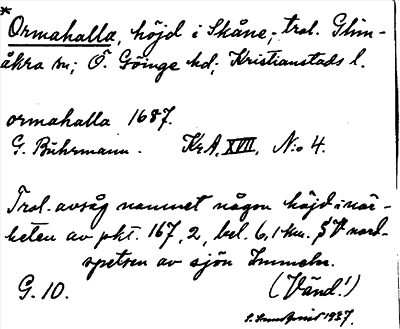 *
Ormahalla, höjd i Skåne, trol. Glim-
åkra sn; Ö. Göinge hd; Kristianstads l.
ormahalla 1687.
G. Buhrmann. Kr.A. XVII, N:o 4.
Trol. avsåg namnet någon höjd i när-
heten av pkt. 167,2, bel. 6,1 km. SV nord-
spetsen av sjön Immeln.
G. 10. (Vänd!)
1937.